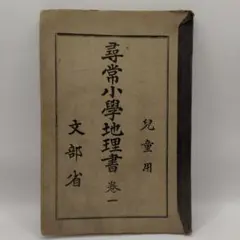 兒童用
尋常小學地理書 卷一
文部省